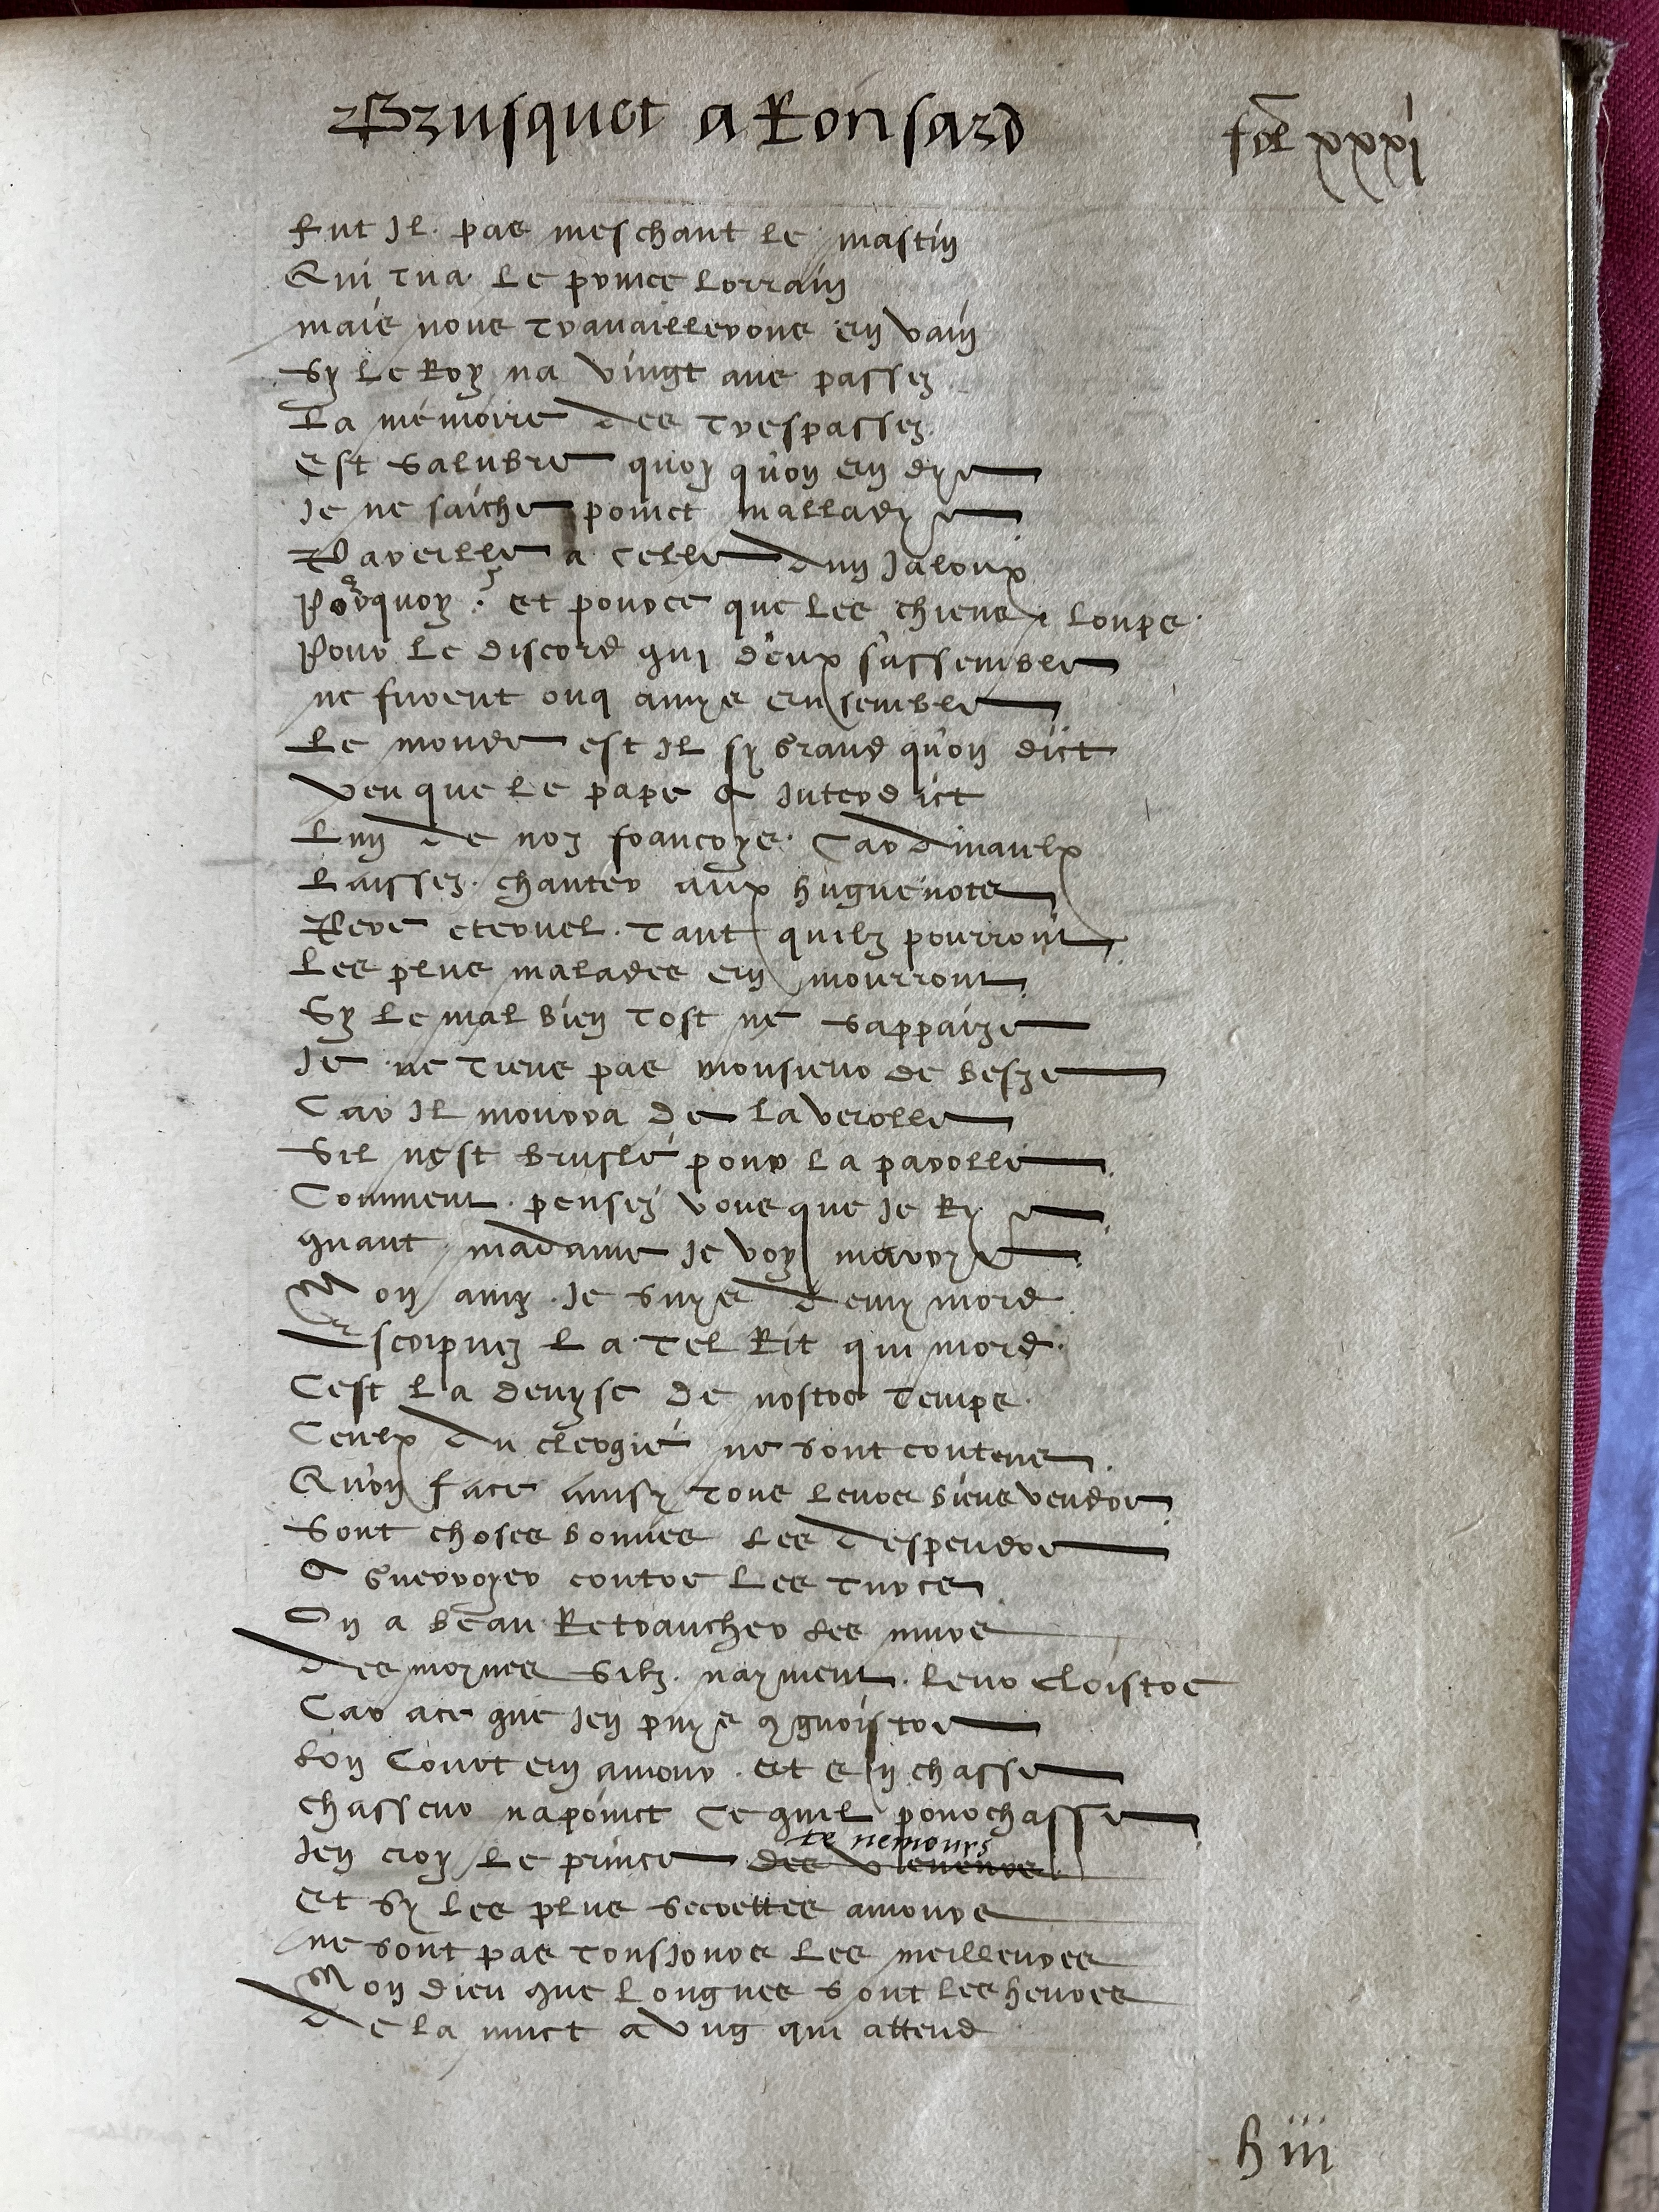 Brusquet a Ronsard
fol xxxi
Fut Il pas meschant le mastin
Qui tua le prince lorrain
mais nous travaillerons en vain
Sy le Roy na vingt ans passez
La mémoire des trespassez
Est salubre quoy quon en dye
Je ne saiche poinct malladye
Pareille a celle dun Jaloux
Pourquoy ? et pource que les chiens & loups
Pour le discord qui deux sassemble
ne furent onq amys ensemble
Le monde est Il sy grand quon dict
veu que le pape a Interdict
Lun de noz francoys Cardinaulx
Laissez chanter aux huguenotz
Pere eternel tant quilz pourront
Les plus malades en mourront
Sy le mal bien tost ne sappaize
Je ne tiens pas monsieur de besze
Car Il mourra de la verolle
Sil nest bruslé pour la parolle
Comment pensez vous que Je Rye
quant madame Je voy marrye
Mon amy Je suys demy mord
Escripvez la tel Rit qui mord
Cest la devyse de nostre temps
Ceulx du clergié ne sont contens
Quon face ainsy tous leurs biens vendre
Sont choses bonnes les despendre
A guerroyer contre les turcz
On a beau Retrancher les murs
des moynes silz nayment leur cloistre
Car ace que Jen puys cgnoistre
Lon Court en amour et en chasse
chasseur na poinct ce quil pourchasse
Jen croy le prince des
de nemours
et sy les plus secrettes amours
ne sont pas tousjours les meilleures
Mon dieu que longues sont les heures
de la nuict a ung qui attend
h iii